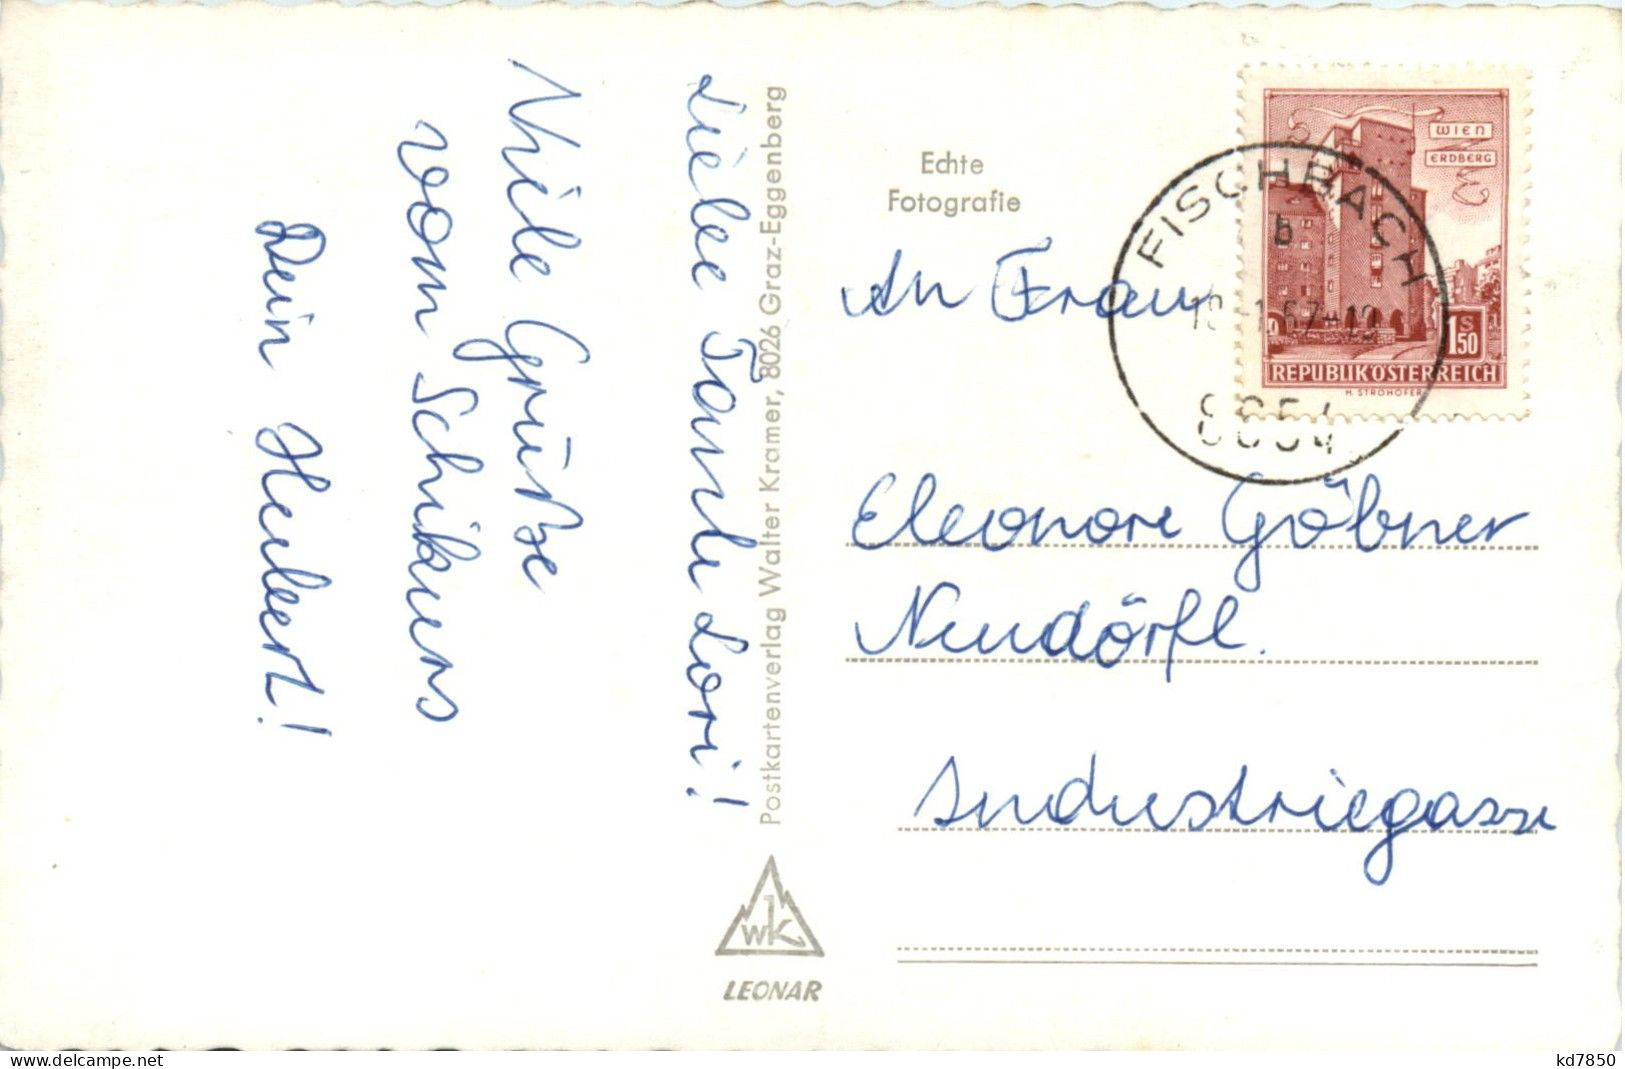 Liebe Tante Lori!
Viele Grüße
vom Schikurs
Dein Hubert!
Postkartenverlag Walter Kramer, 8026 Graz-Eggenberg
WK
LEONAR
Echte
Fotografie
WIEN
ERDBERG
S
1.50
REPUBLIK ÖSTERREICH
H. STROHOFER
FISCHBACH
b
8654
An Frau
Eleonore Göbner
Neudörfl.
Industriegasse
www.delcampe.net
kd7850